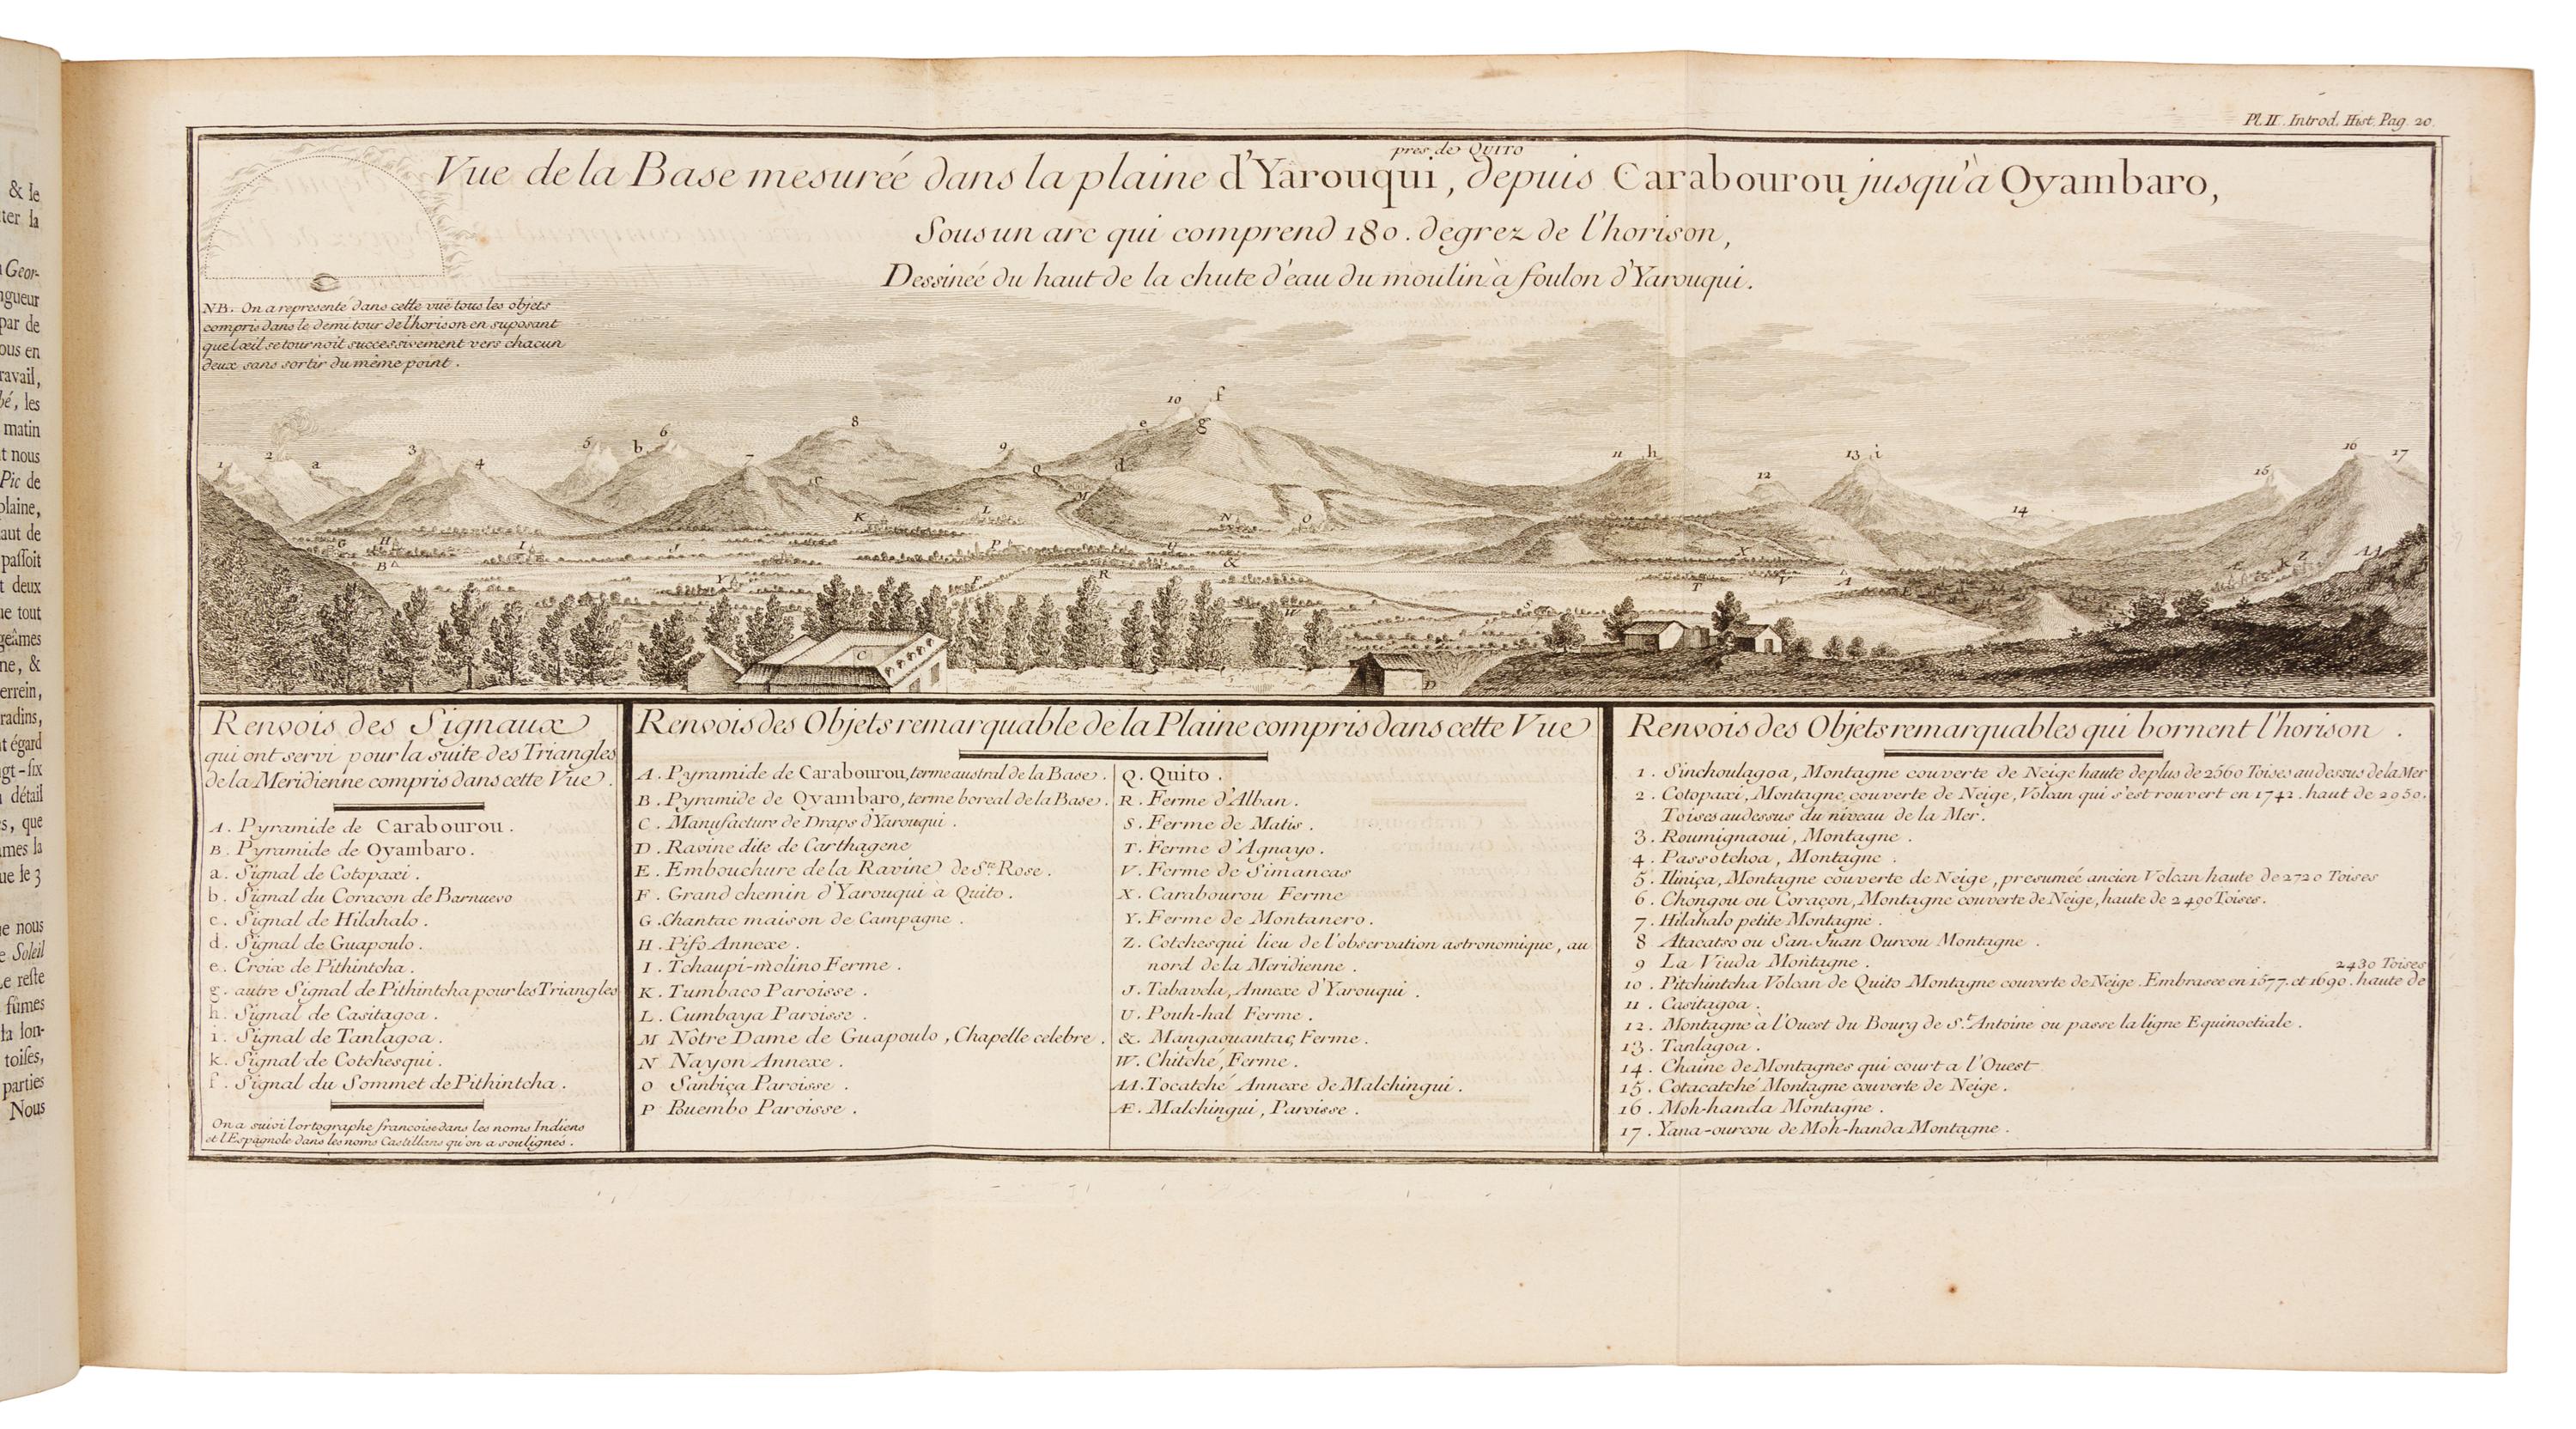 & le
ter la
Geor-
ngueur
par de
ous en
ravail,
bé, les
matin
t nous
Pic de
plaine,
aut de
passoit
t deux
ue tout
geâmes
ne, &
errein,
radins,
t égard
gt-six
détail
s, que
ames la
ue le 3
e nous
e Soleil
Le reste
fûmes
la lon-
toises,
parties
Nous
Pl. II. Introd. Hist. Pag. 20.
près de QUITO
Vue de la Base mesurée dans la plaine d'Yarouqui, depuis Carabourou jusqu'à Oyambaro,
Sous un arc qui comprend 180. degrez de l'horison,
Dessinée du haut de la chute d'eau du moulin à foulon d'Yarouqui.
NB. On a representé dans cette vuë tous les objets
compris dans le demi tour de l'horison en suposant
que l'œil se tournoit successivement vers chacun
deux sans sortir du même point.
Renvois des Signaux
qui ont servi pour la suite des Triangles
de la Meridienne compris dans cette Vue.
A. Pyramide de Carabourou.
B. Pyramide de Oyambaro.
a. Signal de Cotopaxi.
b. Signal du Coraçon de Barnuevo
c. Signal de Hilahalo.
d. Signal de Guapoulo.
e. Croix de Pithintcha.
g. autre Signal de Pithintcha pour les Triangles
h. Signal de Casitagoa.
i. Signal de Tanlagoa.
k. Signal de Cotchesqui.
f. Signal du Sommet de Pithintcha.
On a suivi l'ortographe françoise dans les noms Indiens
et l'Espagnole dans les noms Castillans qu'on a soulignés.
Renvois des Objets remarquable de la Plaine compris dans cette Vue
A. Pyramide de Carabourou, terme austral de la Base.
B. Pyramide de Oyambaro, terme boreal de la Base.
C. Manufacture de Draps d'Yarouqui.
D. Ravine dite de Carthagene
E. Embouchure de la Ravine de Ste. Rose.
F. Grand chemin d'Yarouqui à Quito.
G. Chantac maison de Campagne.
H. Pifo Annexe.
I. Tchaupi-molino Ferme.
K. Tumbaco Paroisse.
L. Cumbaya Paroisse.
M Nôtre Dame de Guapoulo, Chapelle celebre.
N Nayon Annexe.
O Sanbiça Paroisse.
P Puembo Paroisse.
Q. Quito.
R. Ferme d'Alban.
S. Ferme de Matis.
T. Ferme d'Agnayo.
V. Ferme de Simancas
X. Carabourou Ferme
Y. Ferme de Montanero.
Z. Cotchesqui lieu de l'observation astronomique, au
nord de la Meridienne.
J. Tabavela, Annexe d'Yarouqui.
U. Pouh-hal Ferme.
&. Mangaouantac, Ferme.
W. Chitché, Ferme.
AA. Tocatché Annexe de Malchingui.
Æ. Malchingui, Paroisse.
Renvois des Objets remarquables qui bornent l'horison.
1. Sinchoulagoa, Montagne couverte de Neige haute de plus de 2560 Toises au dessus de la Mer
2. Cotopaxi, Montagne couverte de Neige, Volcan qui s'est rouvert en 1742. haut de 2950.
Toises au dessus du niveau de la Mer.
3. Roumignaoui, Montagne.
4. Passotchoa, Montagne.
5. Iliniça, Montagne couverte de Neige, presumée ancien Volcan haute de 2720 Toises
6. Chongou ou Coraçon, Montagne couverte de Neige, haute de 2490 Toises.
7. Hilahalo petite Montagne.
8 Atacatso ou San Juan Ourcou Montagne.
9 La Viuda Montagne.
2430 Toises
10. Pitchintcha Volcan de Quito Montagne couverte de Neige. Embrasée en 1577. et 1690. haute de
11. Casitagoa.
12. Montagne à l'Ouest du Bourg de St. Antoine ou passe la ligne Equinoctiale.
13. Tanlagoa.
14. Chaine de Montagnes qui court a l'Ouest
15. Cotacatché Montagne couverte de Neige.
16. Moh-handa Montagne.
17. Yana-ourcou de Moh-handa Montagne.